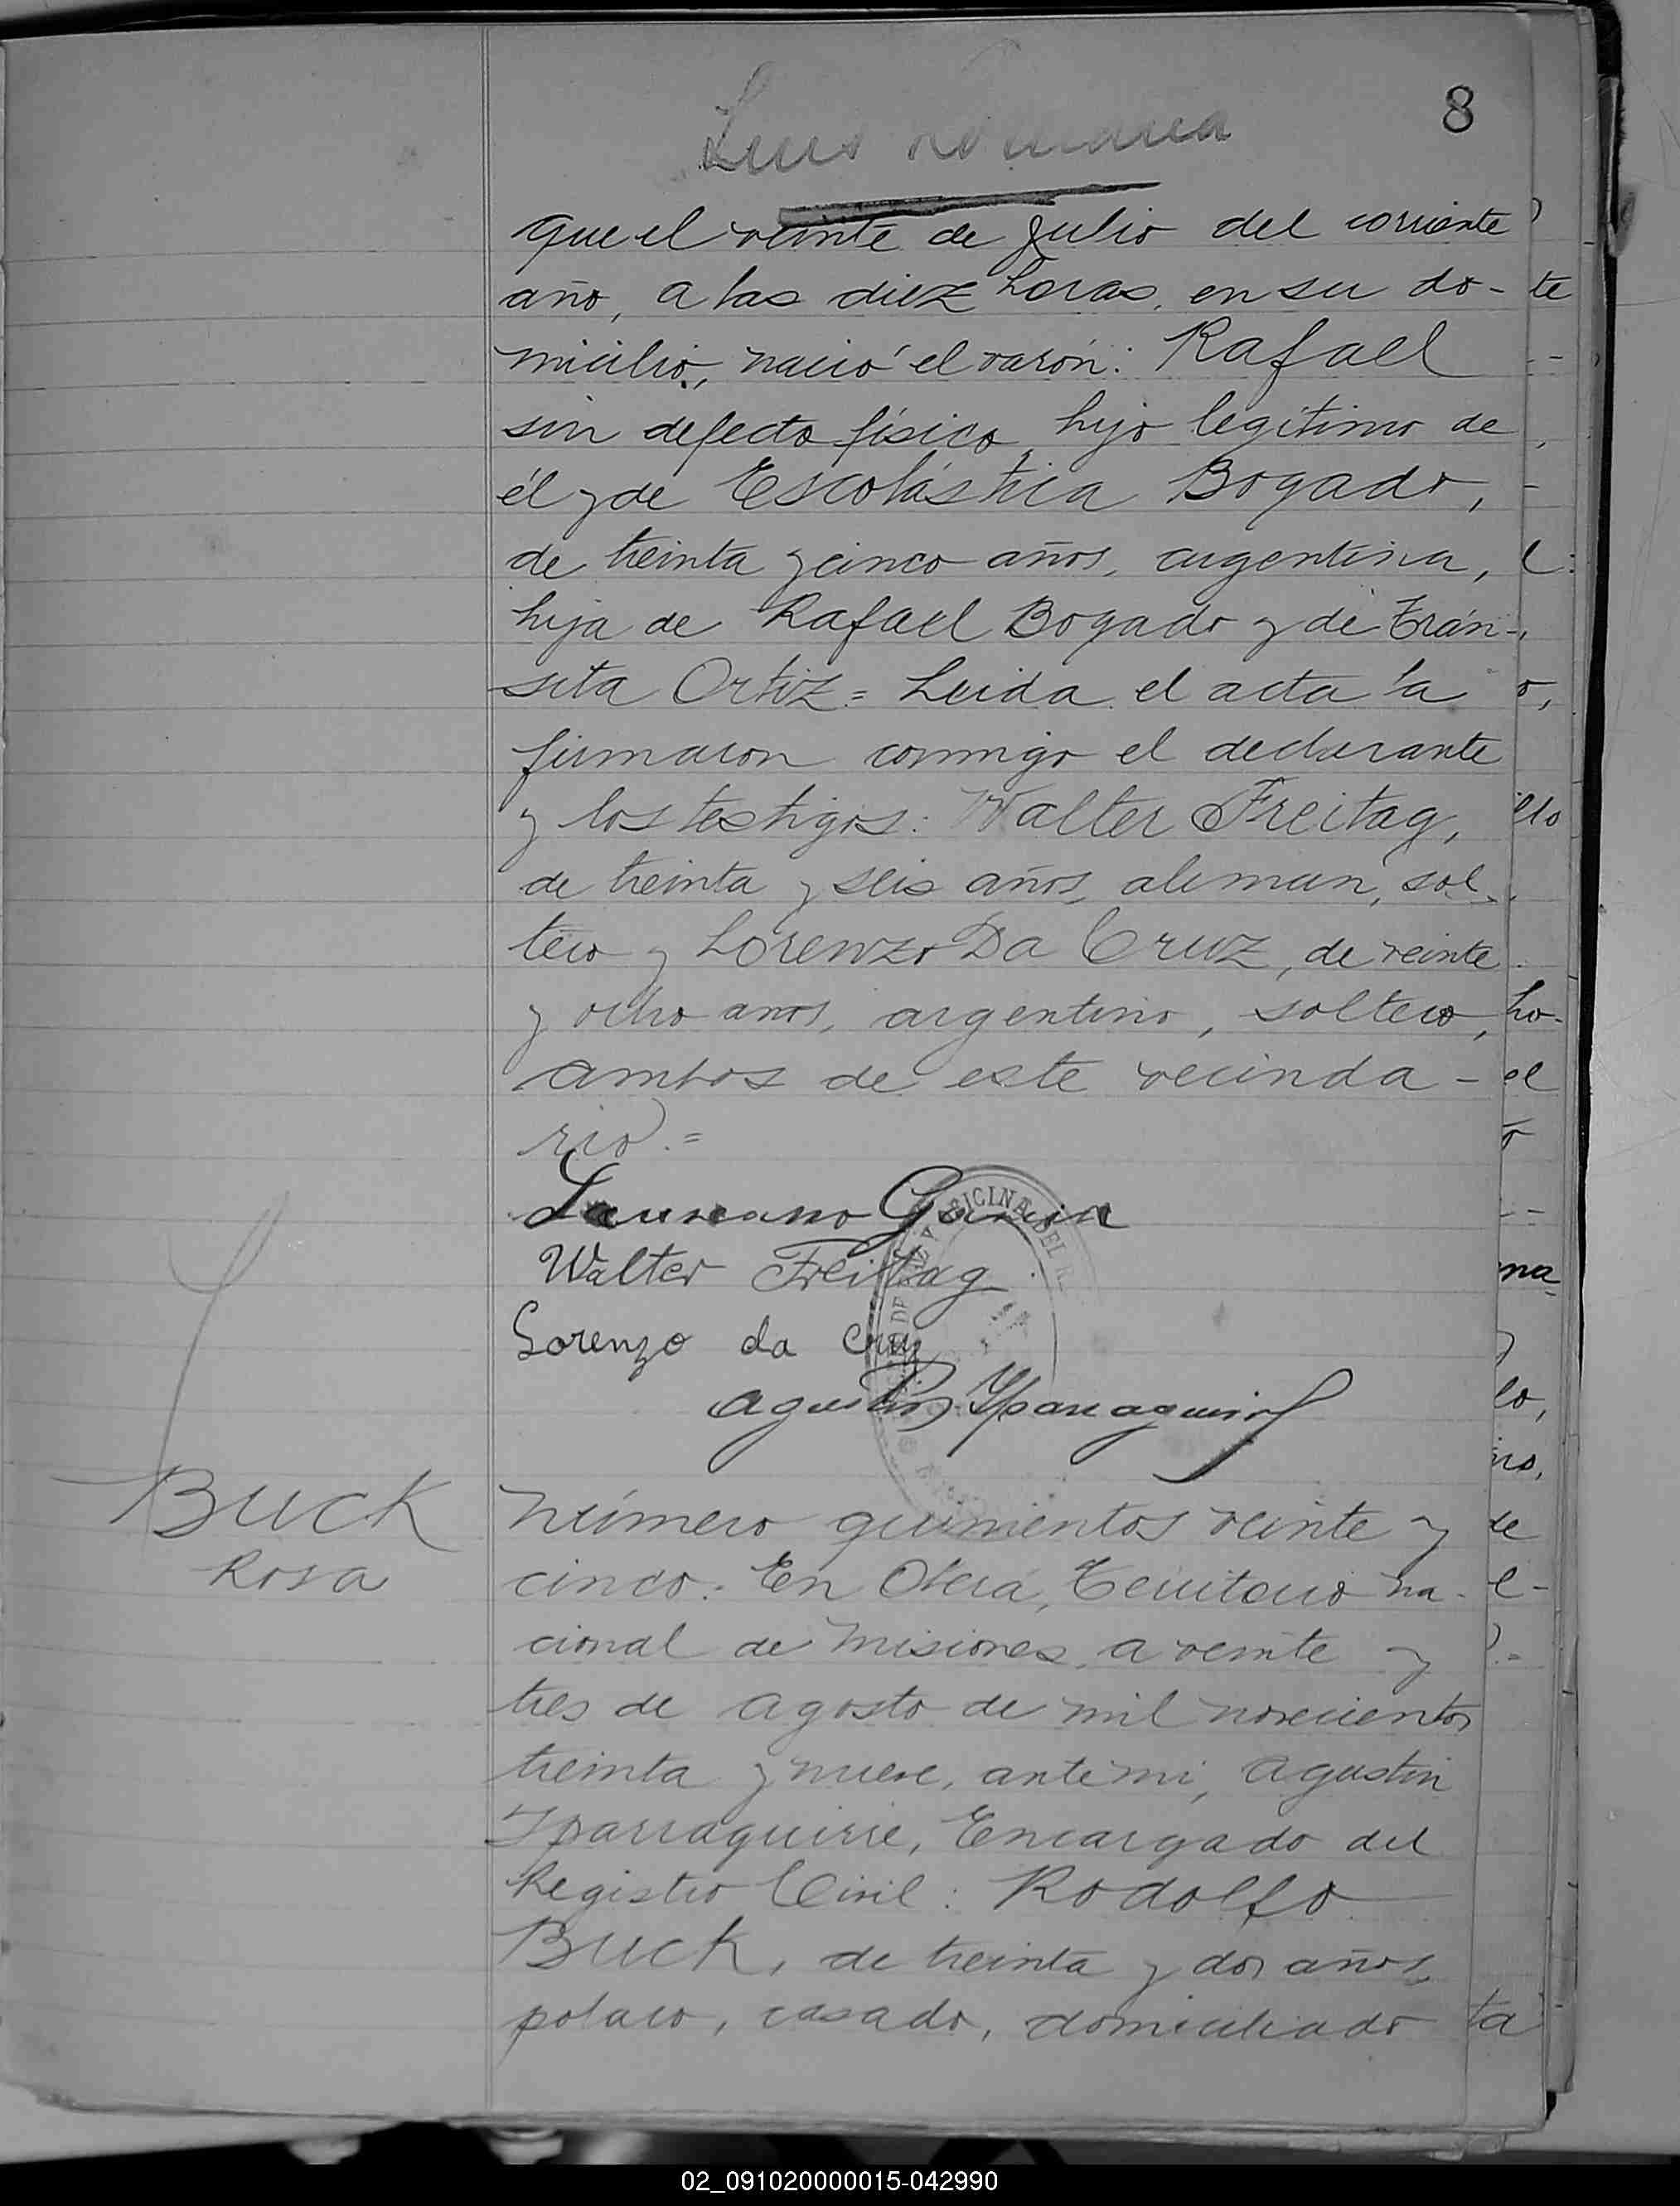 8
Luis
que el veinte de Julio del corriente
año, a las diez horas, en su do-
micilio, nació el varón: Rafael
sin defecto físico, hijo legítimo de
él y de Escolástica Bogado,
de treinta y cinco años, argentina,
hija de Rafael Bogado y de Trán-
sita Ortiz = Leida el acta la
firmaron conmigo el declarante
y los testigos: Walter Freitag,
de treinta y seis años, aleman, sol-
tero y Lorenzo Da Cruz, de veinte
y ocho años, argentino, soltero,
ambos de este vecinda-
rio. =
Laureano Garcia
Walter Freitag
Lorenzo da Cruz
Agustin Yparraguirre
OFICINA DEL R
BUCK
Rosa
Número quinientos veinte y
cinco. En Oberá, Territorio Na-
cional de Misiones, a veinte y
tres de Agosto de mil novecientos
treinta y nueve, ante mi, Agustin
Yparraguirre, Encargado del
Registro Civil: Rodolfo
BUCK, de treinta y dos años,
polaco, casado, domiciliado
te
llo
ho-
el
na
lo,
de
ta
02_091020000015-042990